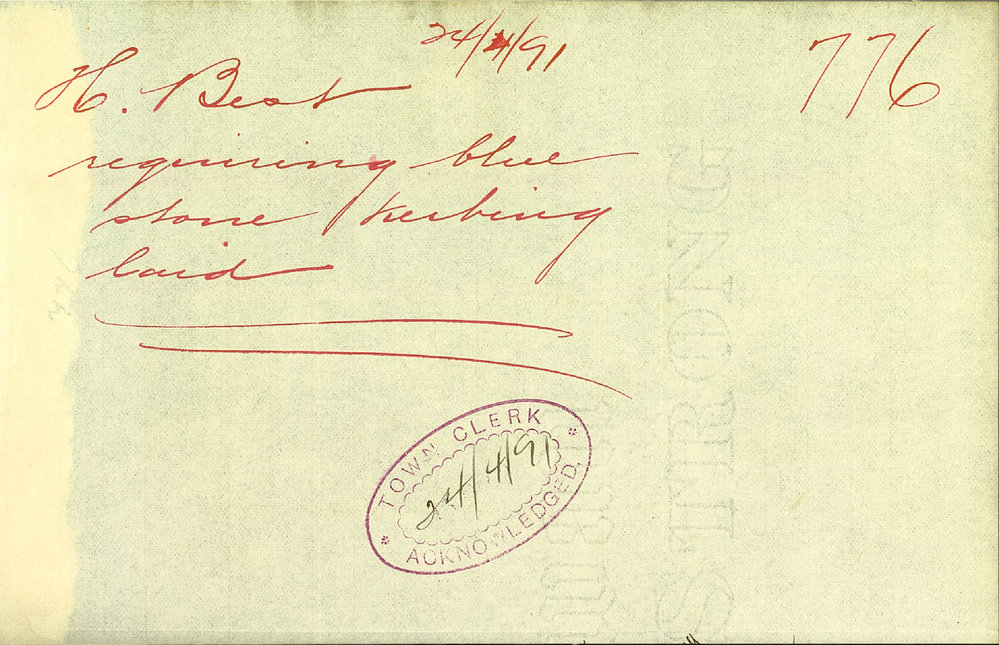 24/4/91
776
H. Best
requiring blue
stone kerbing
laid
TOWN CLERK
24/4/91
ACKNOWLEDGED.
STRONG